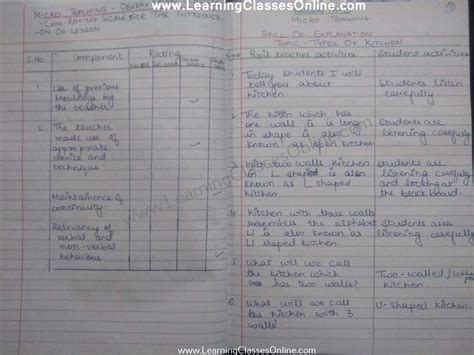 www.LearningClassesOnline.com
MICRO TEACHING - OBSER
-CUM-RATING SCALE FOR THE INTRODUCT
-ON OF LESSON
S.No
Component
Rating
1
Use of previous
knowledge by
the teacher
2.
The teacher
made use of
appropriate
device and
technique
Maintainence of
continuity
Relevancy of
verbal and
non-verbal
behaviour
MICRO TEACHING
SKILL OF EXPLANATION
TOPIC - TYPES OF KITCHEN
Pupil teacher activities
Student activities
1.
Today students I will
tell you about
kitchen.
Students listen
carefully.
2.
The kitchen which has
one wall is a long
in shape is also
known as open kitchen
Students are
listening carefully
3.
With two walls kitchen
in L shaped is also
known as L shaped
kitchen.
Students are
listening carefully
and looking at
the black board.
4.
Kitchen with three walls
resembles the alphabet
U is also known as
U shaped kitchen.
Students are
listening carefully
5.
What will we call
the kitchen which
has two walls?
Two-walled/
kitchen
6.
What will we call
the kitchen with 3
walls
U-shaped kitchen
www.LearningClassesOnline.com
www.LearningClassesOnline.com